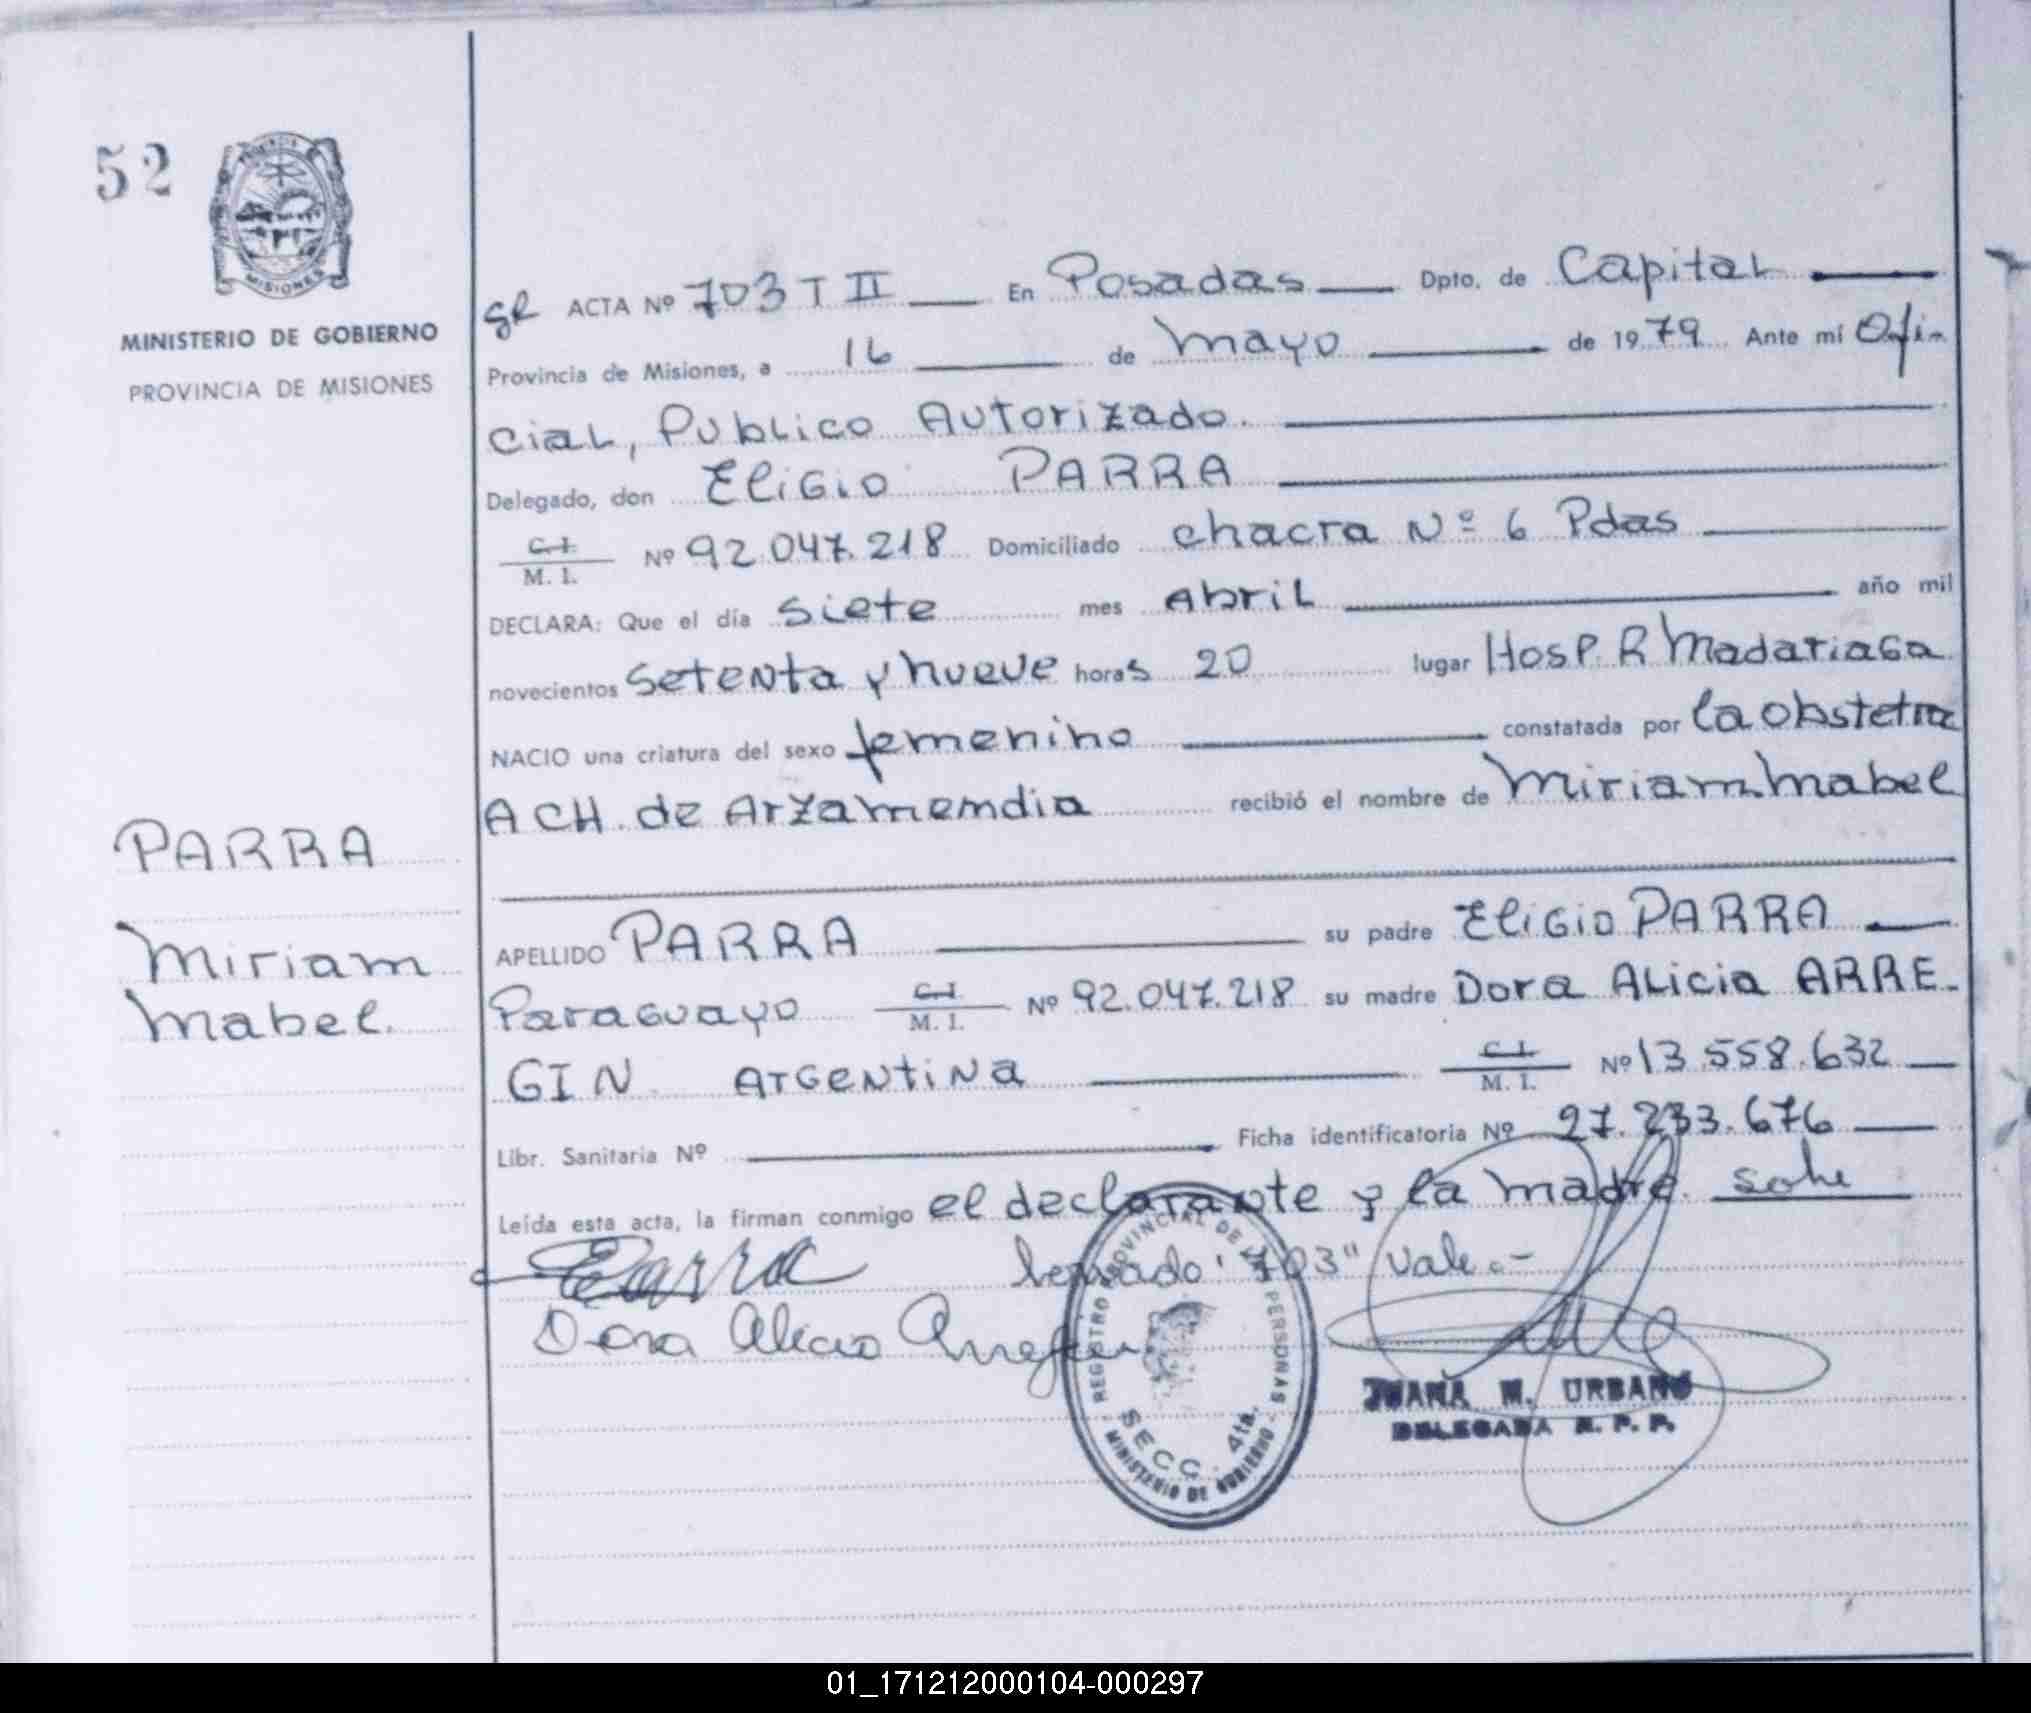 52
MISIONES
MINISTERIO DE GOBIERNO
PROVINCIA DE MISIONES
PARRA
Miriam
Mabel.
gR ACTA Nº 703 T II En Posadas Dpto. de Capital
Provincia de Misiones, a 16 de Mayo de 1979 Ante mí Ofi-
cial, Publico Autorizado.
Delegado, don Eligio PARRA
C.I. / M. I. Nº 92.047.218 Domiciliado chacra Nº 6 Pdas
DECLARA: Que el día siete mes Abril año mil
novecientos setenta y nueve horas 20 lugar Hosp. R Madariaga
NACIO una criatura del sexo femenino constatada por la obstetra
A CH. de Arzamemdia recibió el nombre de Miriam Mabel
APELLIDO PARRA su padre Eligio PARRA
Paraguayo C.I. / M. I. Nº 92.047.218 su madre Dora Alicia ARRE-
GIN Argentina C.I. / M. I. Nº 13.558.632
Libr. Sanitaria Nº Ficha identificatoria Nº 27.233.676
Leída esta acta, la firman conmigo el declarante y la madre. sobre
EParra borrado "703" vale.-
Dora Alicia Arregin
REGISTRO PROVINCIAL DE LAS PERSONAS
SECC. 4ta.
MINISTERIO DE GOBIERNO
JUANA M. URBANO
DELEGADA R. P. P.
01_171212000104-000297